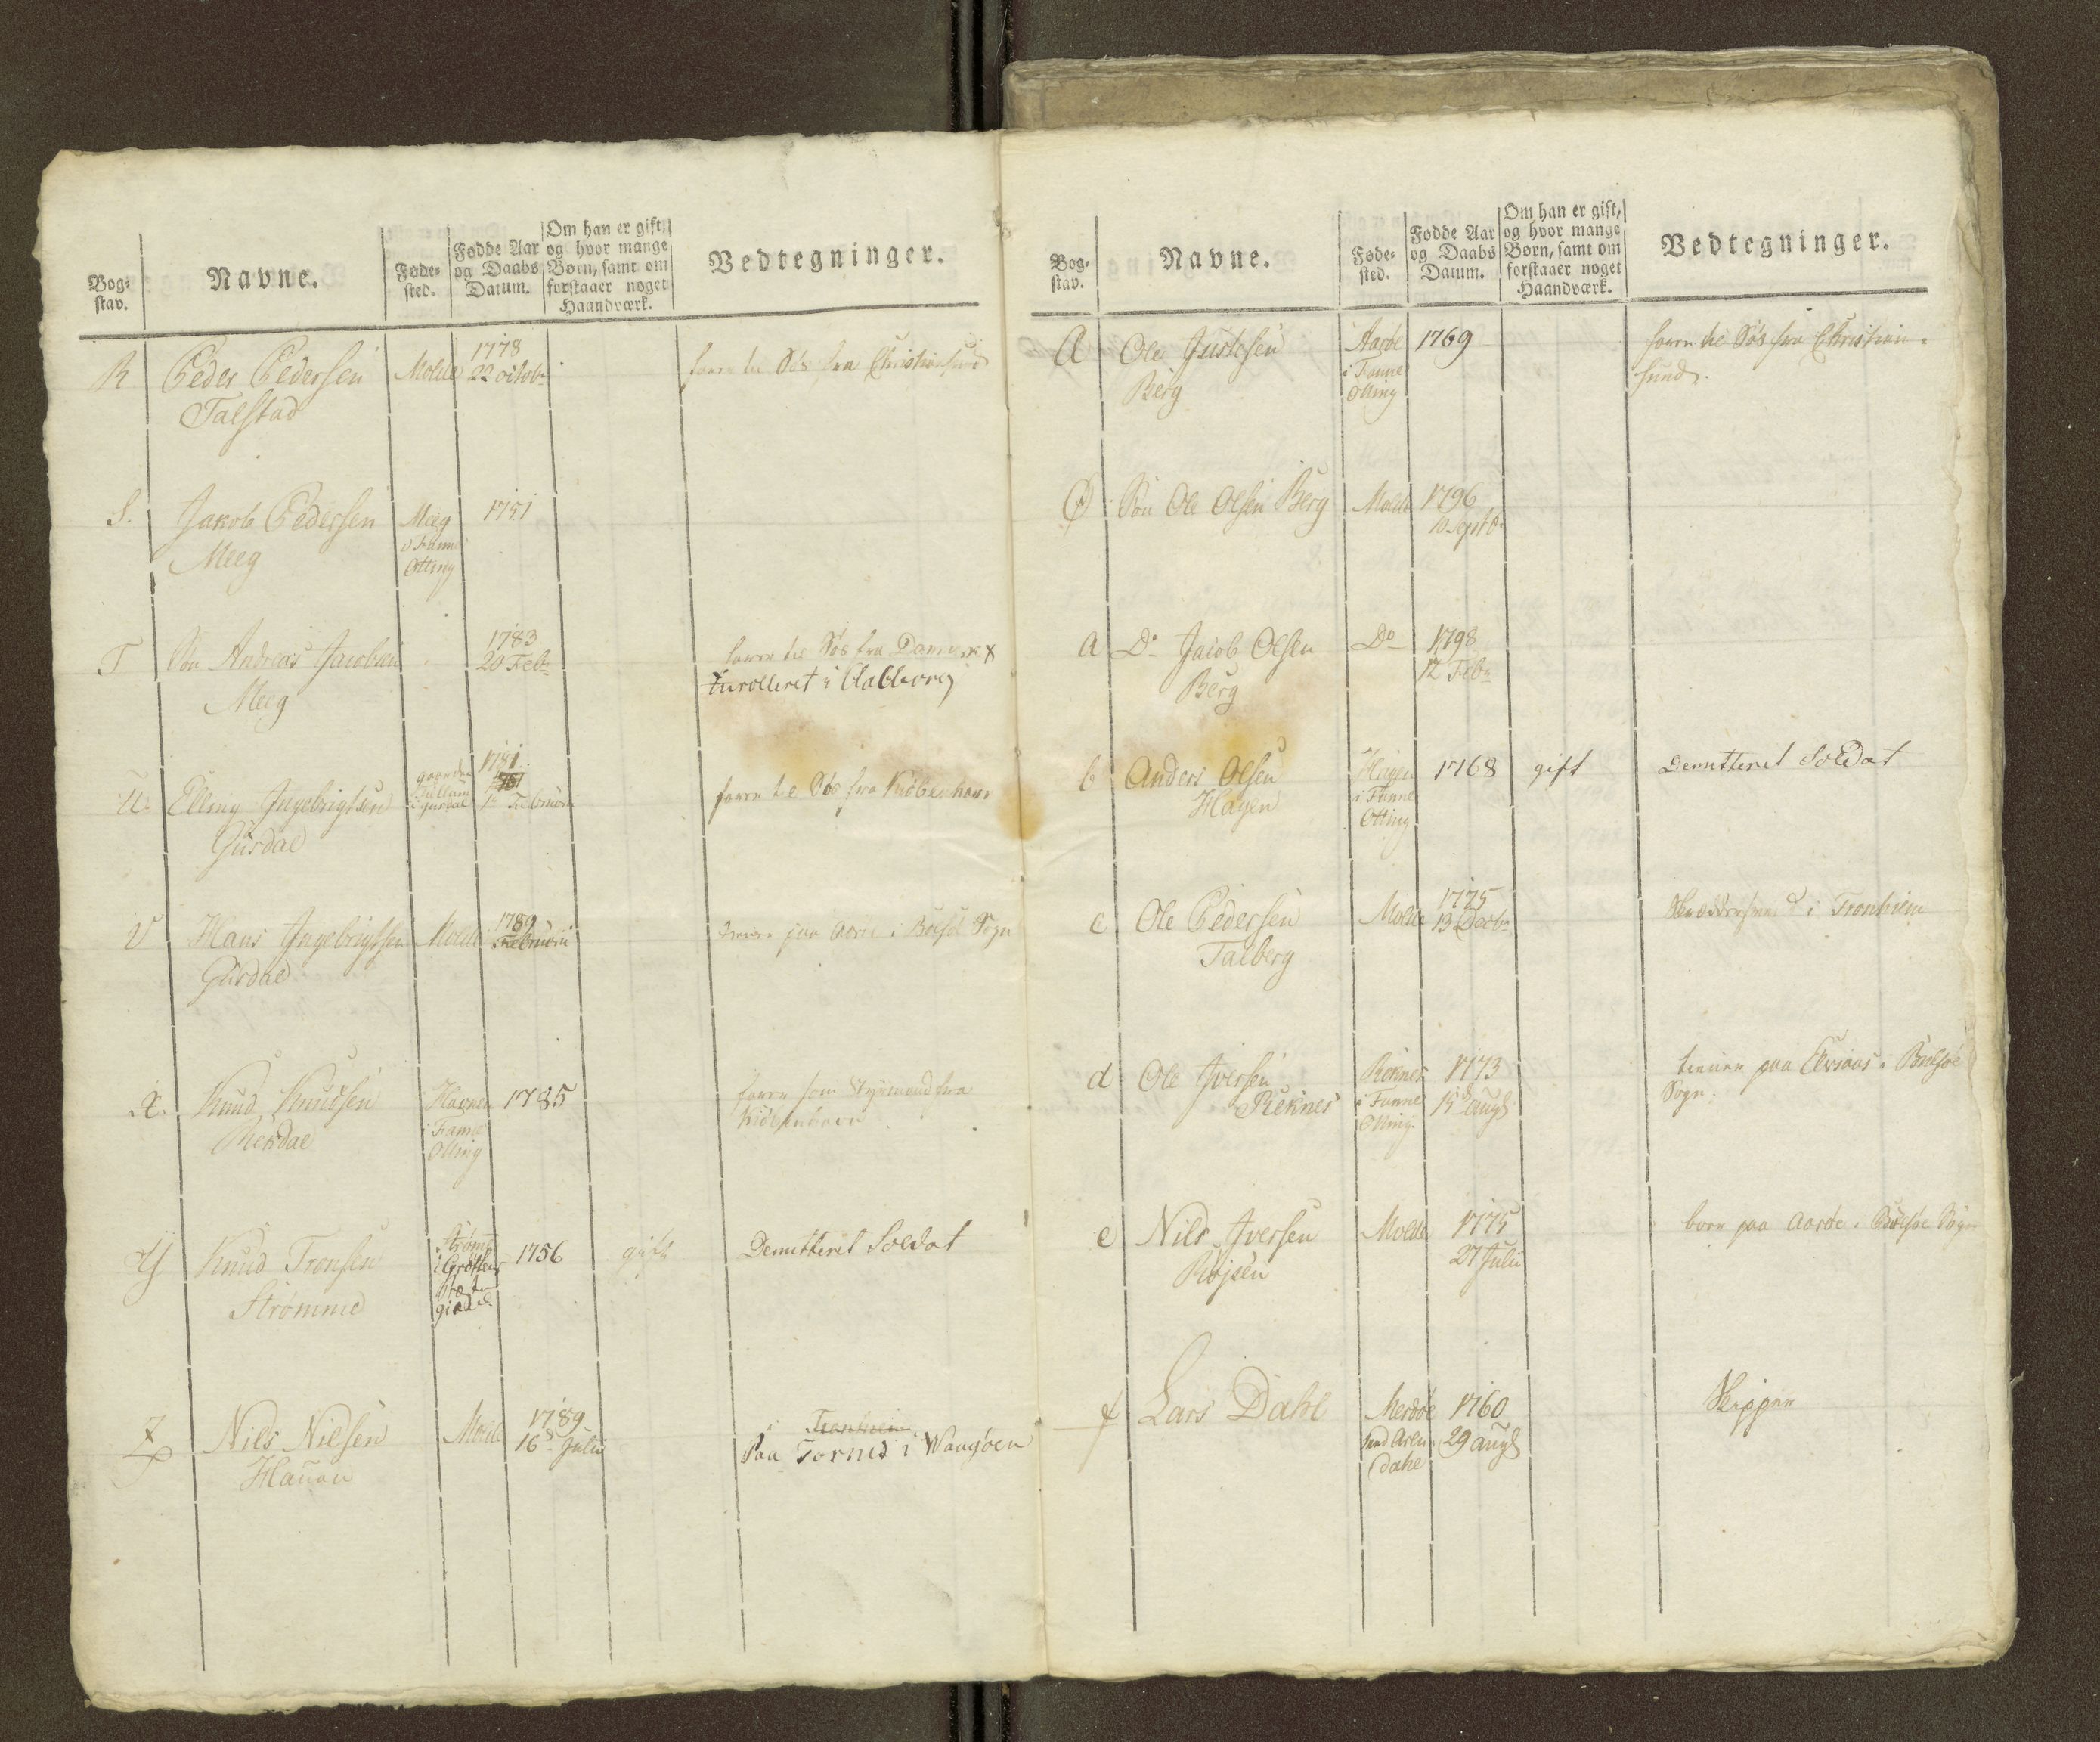 Bog-
stav.
Navne.
Føde-
sted.
Fødde Aar
og Daabs
Datum.
Om han er gift,
og hvor mange
Børn, samt om
forstaaer noget
Haandværk.
Vedtegninger.
R Peder Pedersen Molde 1778
22 octob.
Talstad
farer til Søs fra Christiansund
S. Jakob Pedersen
Meeg
Meeg
i Fanne
Otting
1751
T Søn Andreas Jacobsen
Meeg
1783
20 Feb.
farer til Søs fra Danmark
Enrolleret i Aalborg
U. Elling Ingebrigtsen
Gusdal
1781
1 Februari
farer til Søs fra Kiøbenhavn
V Hans Ingebrigtsen
Gusdal
Molde
1789
Februarii
tiener paa i Bolsøe Sogn
X. Knud Knudsen
i Fanne
Otting
1785
farer som Styrmand fra
Kiøbenhavn
Y Knud Tronsen
Strømme
Strømme
i
giæld
1756
gift
Demitteret Soldat
Z Nils Nilsen
Hauen
Molde
1789
16 Julii
Tronhiem
Paa Tornes i Waagøen
Bog-
stav.
Navne.
Føde-
sted.
Fødde Aar
og Daabs
Datum.
Om han er gift,
og hvor mange
Børn, samt om
forstaaer noget
Haandværk.
Vedtegninger.
Ole Justesen
Berg
Aarøe
i Fanne
Otting
1769
farer til Søs fra Christian-
sund.
Ø Søn Ole Olsen Berg
Molde
1796
10 Septb.
a Do Jacob Olsen
Berg
Do
1798
12 Feb.
b Anders Olsen
Hagen
Hagen
i Fanne
Otting
1768
gift
Demitteret Soldat
c Ole Pedersen
Talberg
Molde
1775
13 Decb.
i Tronhiem
d Ole Iversen
Reknes
Reknes
i Fanne
Otting
1773
15 Augs.
tiener paa i Bolsøe
Sogn.
e Nils Iversen
Røjsen
Molde
1775
27 Julii
boer paa Aarøe i Bolsøe Sogn
f Lars Dahl
Merdøe
ved Aren-
dahl
1760
29 Augs
Skipper